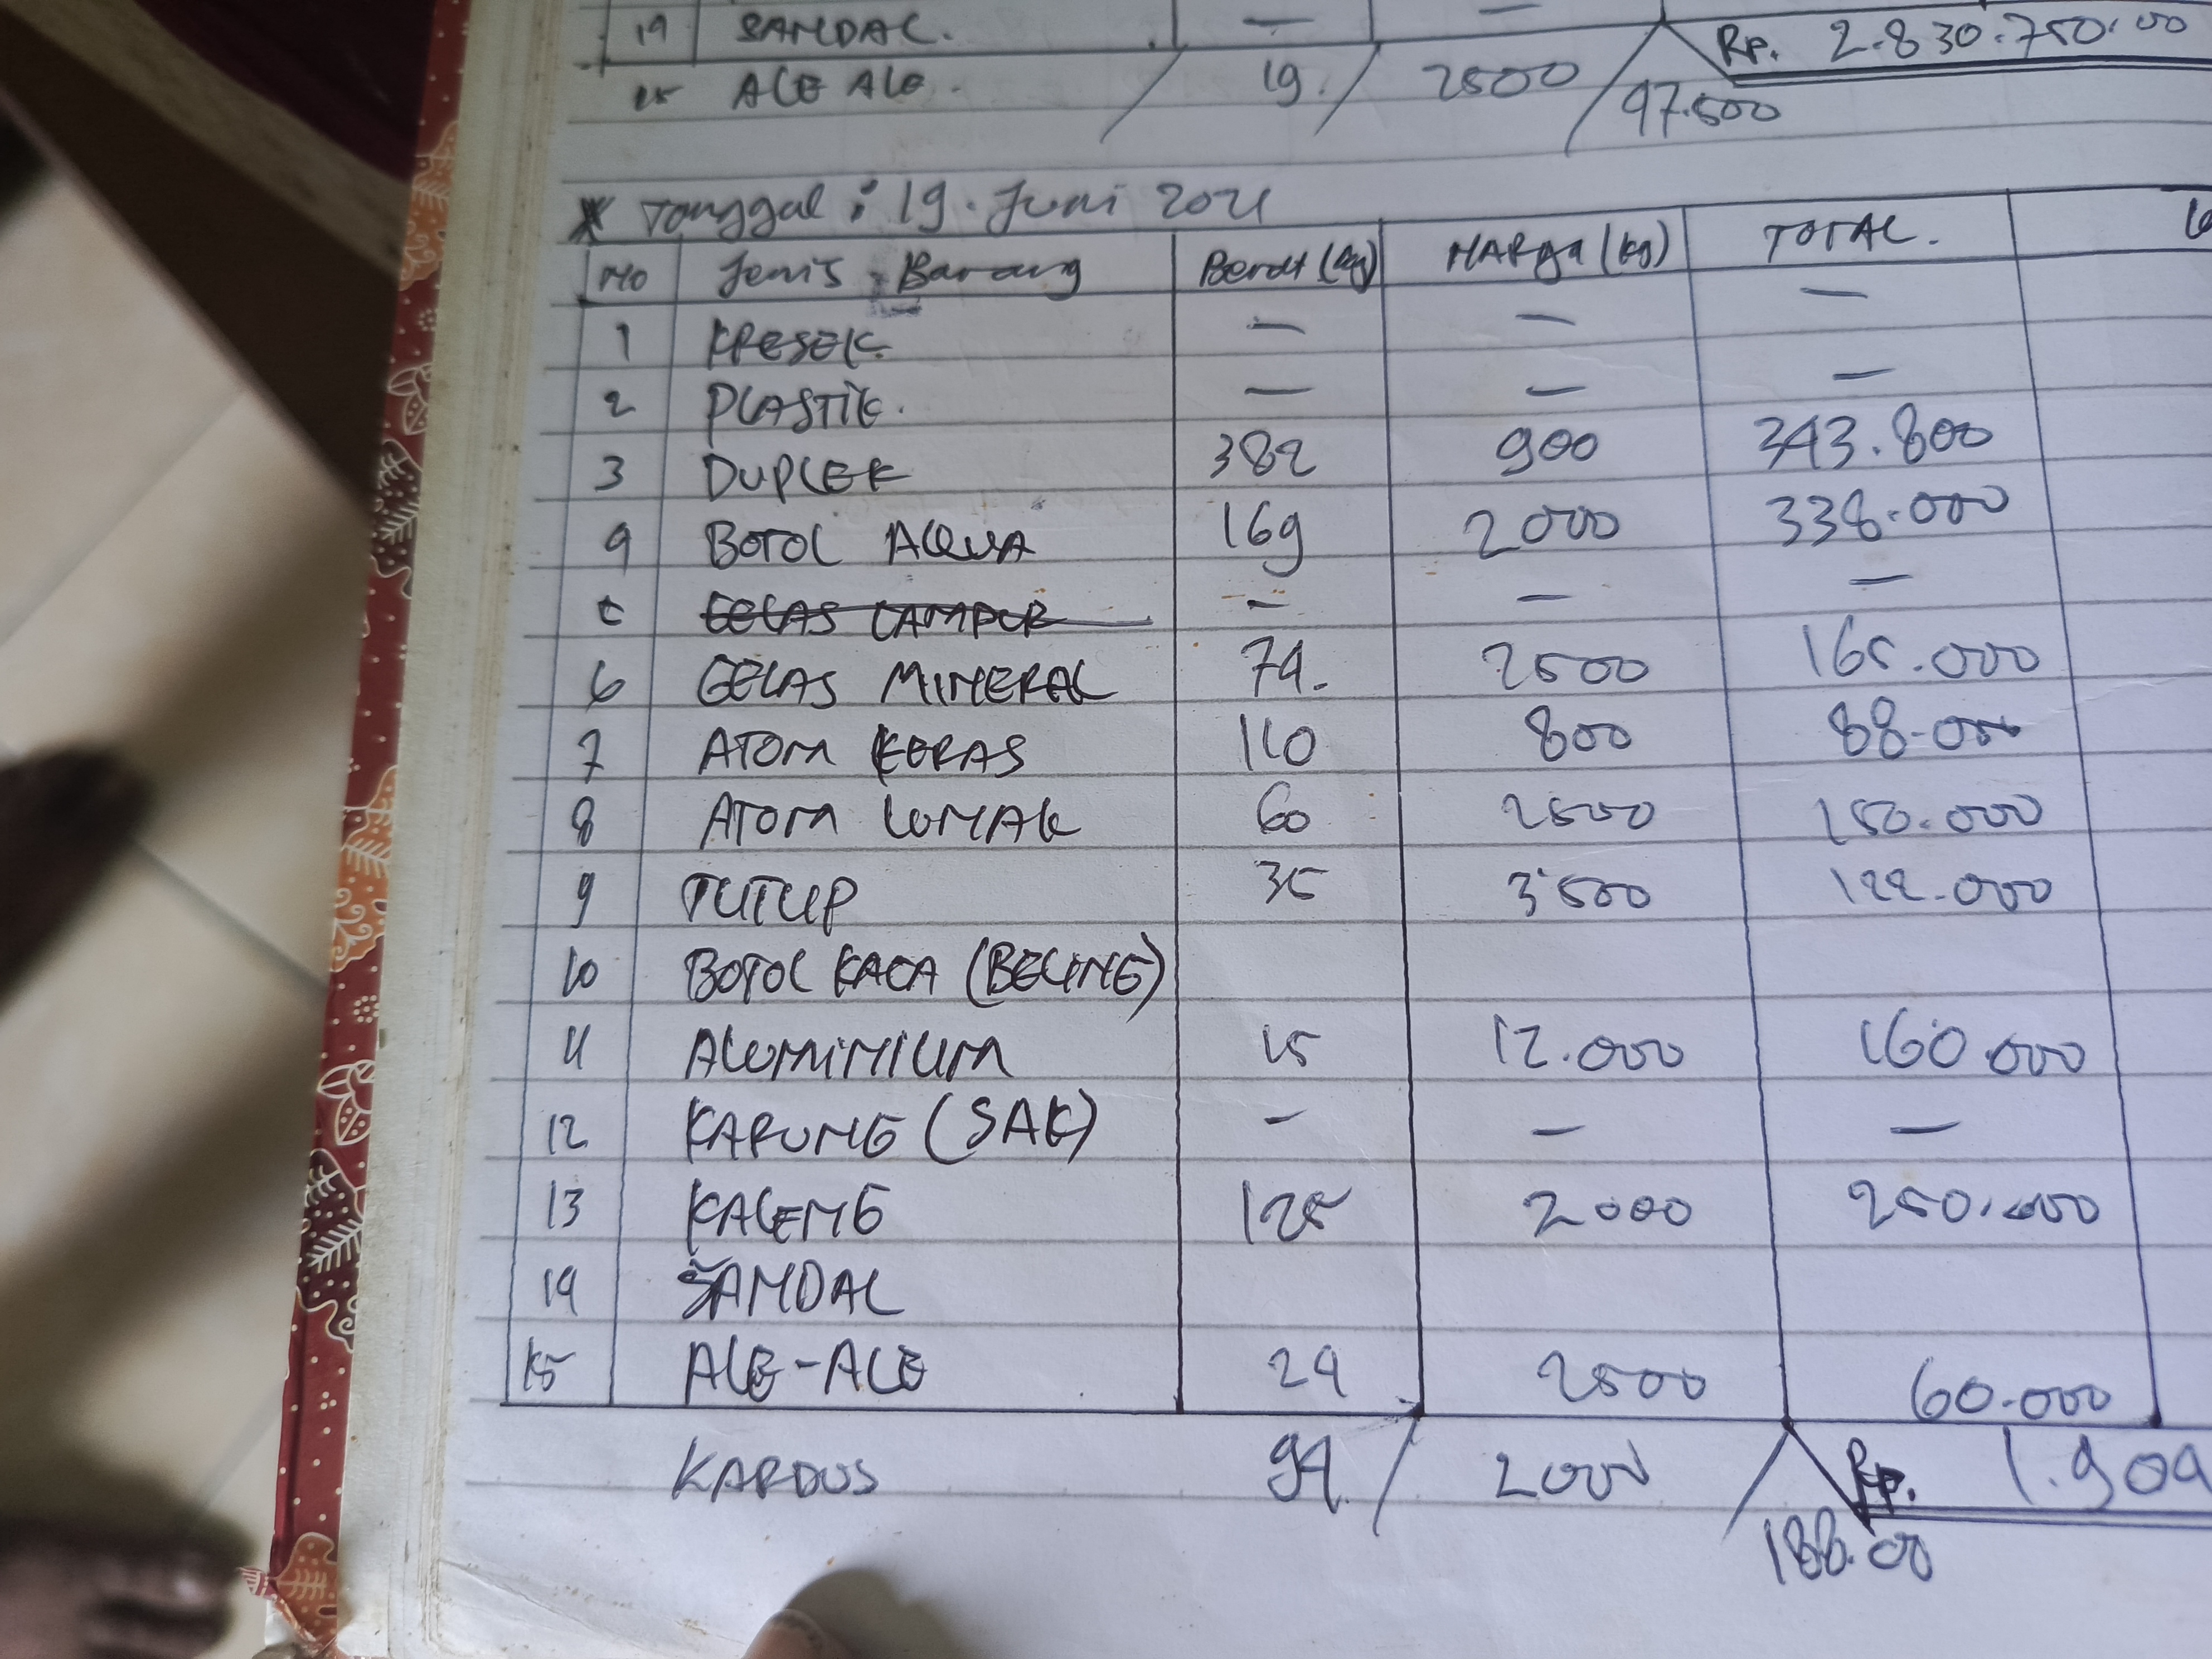 14 SANDAL. — — Rp. 2.830.750.00
15 ALE ALE. / 19. / 2500 / 97.500
* Tanggal : 19. Juni 2021
No Jenis - Barang Berat (kg) HARga (kg) TOTAL.
1 KRESEK. — — —
2 PLASTIK. — — —
3 DUPLEK 382 900 343.800
4 BOTOL AQUA 169 2000 338.000
GELAS CAMPUR — — —
6 GELAS MINERAL 74. 2500 165.000
7 ATOM KERAS 110 800 88.000
8 ATOM LUNAK 60 2500 150.000
9 TUTUP 35 3500 122.000
10 BOTOL KACA (BELING)
11 ALUMINIUM 15 12.000 160.000
12 KARUNG (SAK) — — —
13 KALENG 125 2000 250.000
14 SANDAL
15 ALE-ALE 24 2500 60.000
KARDUS 94. / 2000 / Rp. 1.904
188.00